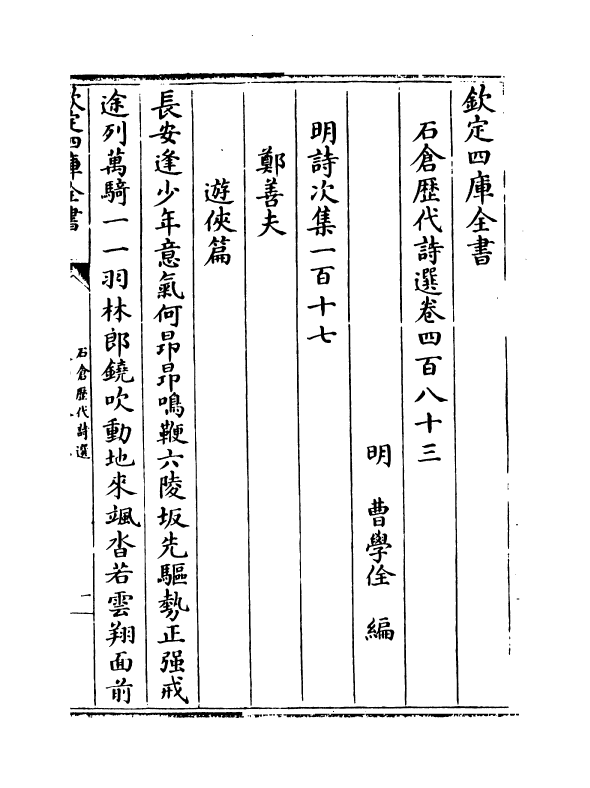 欽定四庫全書
石倉歴代詩選卷四百八十三
明 曹學佺 編
明詩次集一百十七
鄭善夫
遊俠篇
長安逢少年意氣何昂昂鳴鞭六陵坂先驅勢正强戒
途列萬騎一一羽林郎鐃吹動地來颯沓若雲翔面前
欽定四庫全書
石倉歴代詩選